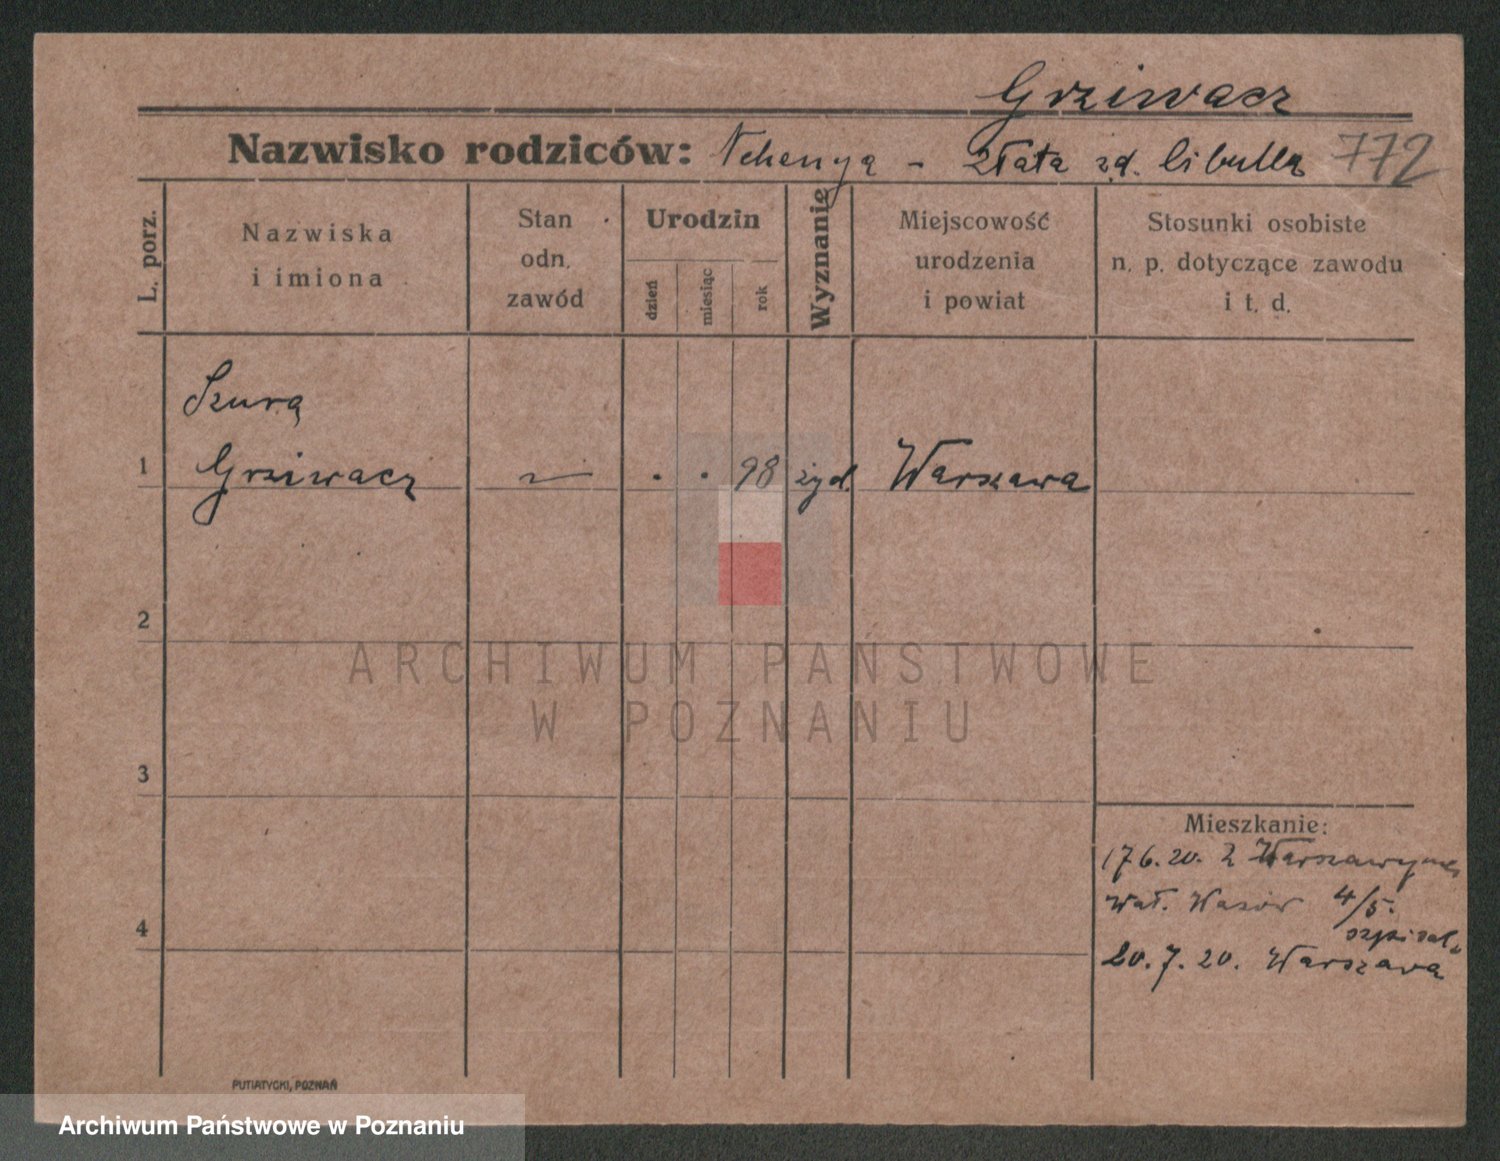 Grziwacz
Nazwisko rodziców: - Złata zd. Libulla 772
L. porz.
Nazwiska
i imiona
Stan
odn.
zawód
Urodzin
dzień
miesiąc
rok
Wyznanie
Miejscowość
urodzenia
i powiat
Stosunki osobiste
n. p. dotyczące zawodu
i t. d.
Szura
1 Grziwacz 98 żyd. Warszawa
2
3
4
Mieszkanie:
17.6.20. z Warszawy
Wał. Wazów 4/5.
szpital
20.7.20. Warszawa
PUTIATYCKI, POZNAŃ
ARCHIWUM PAŃSTWOWE
W POZNANIU
Archiwum Państwowe w Poznaniu